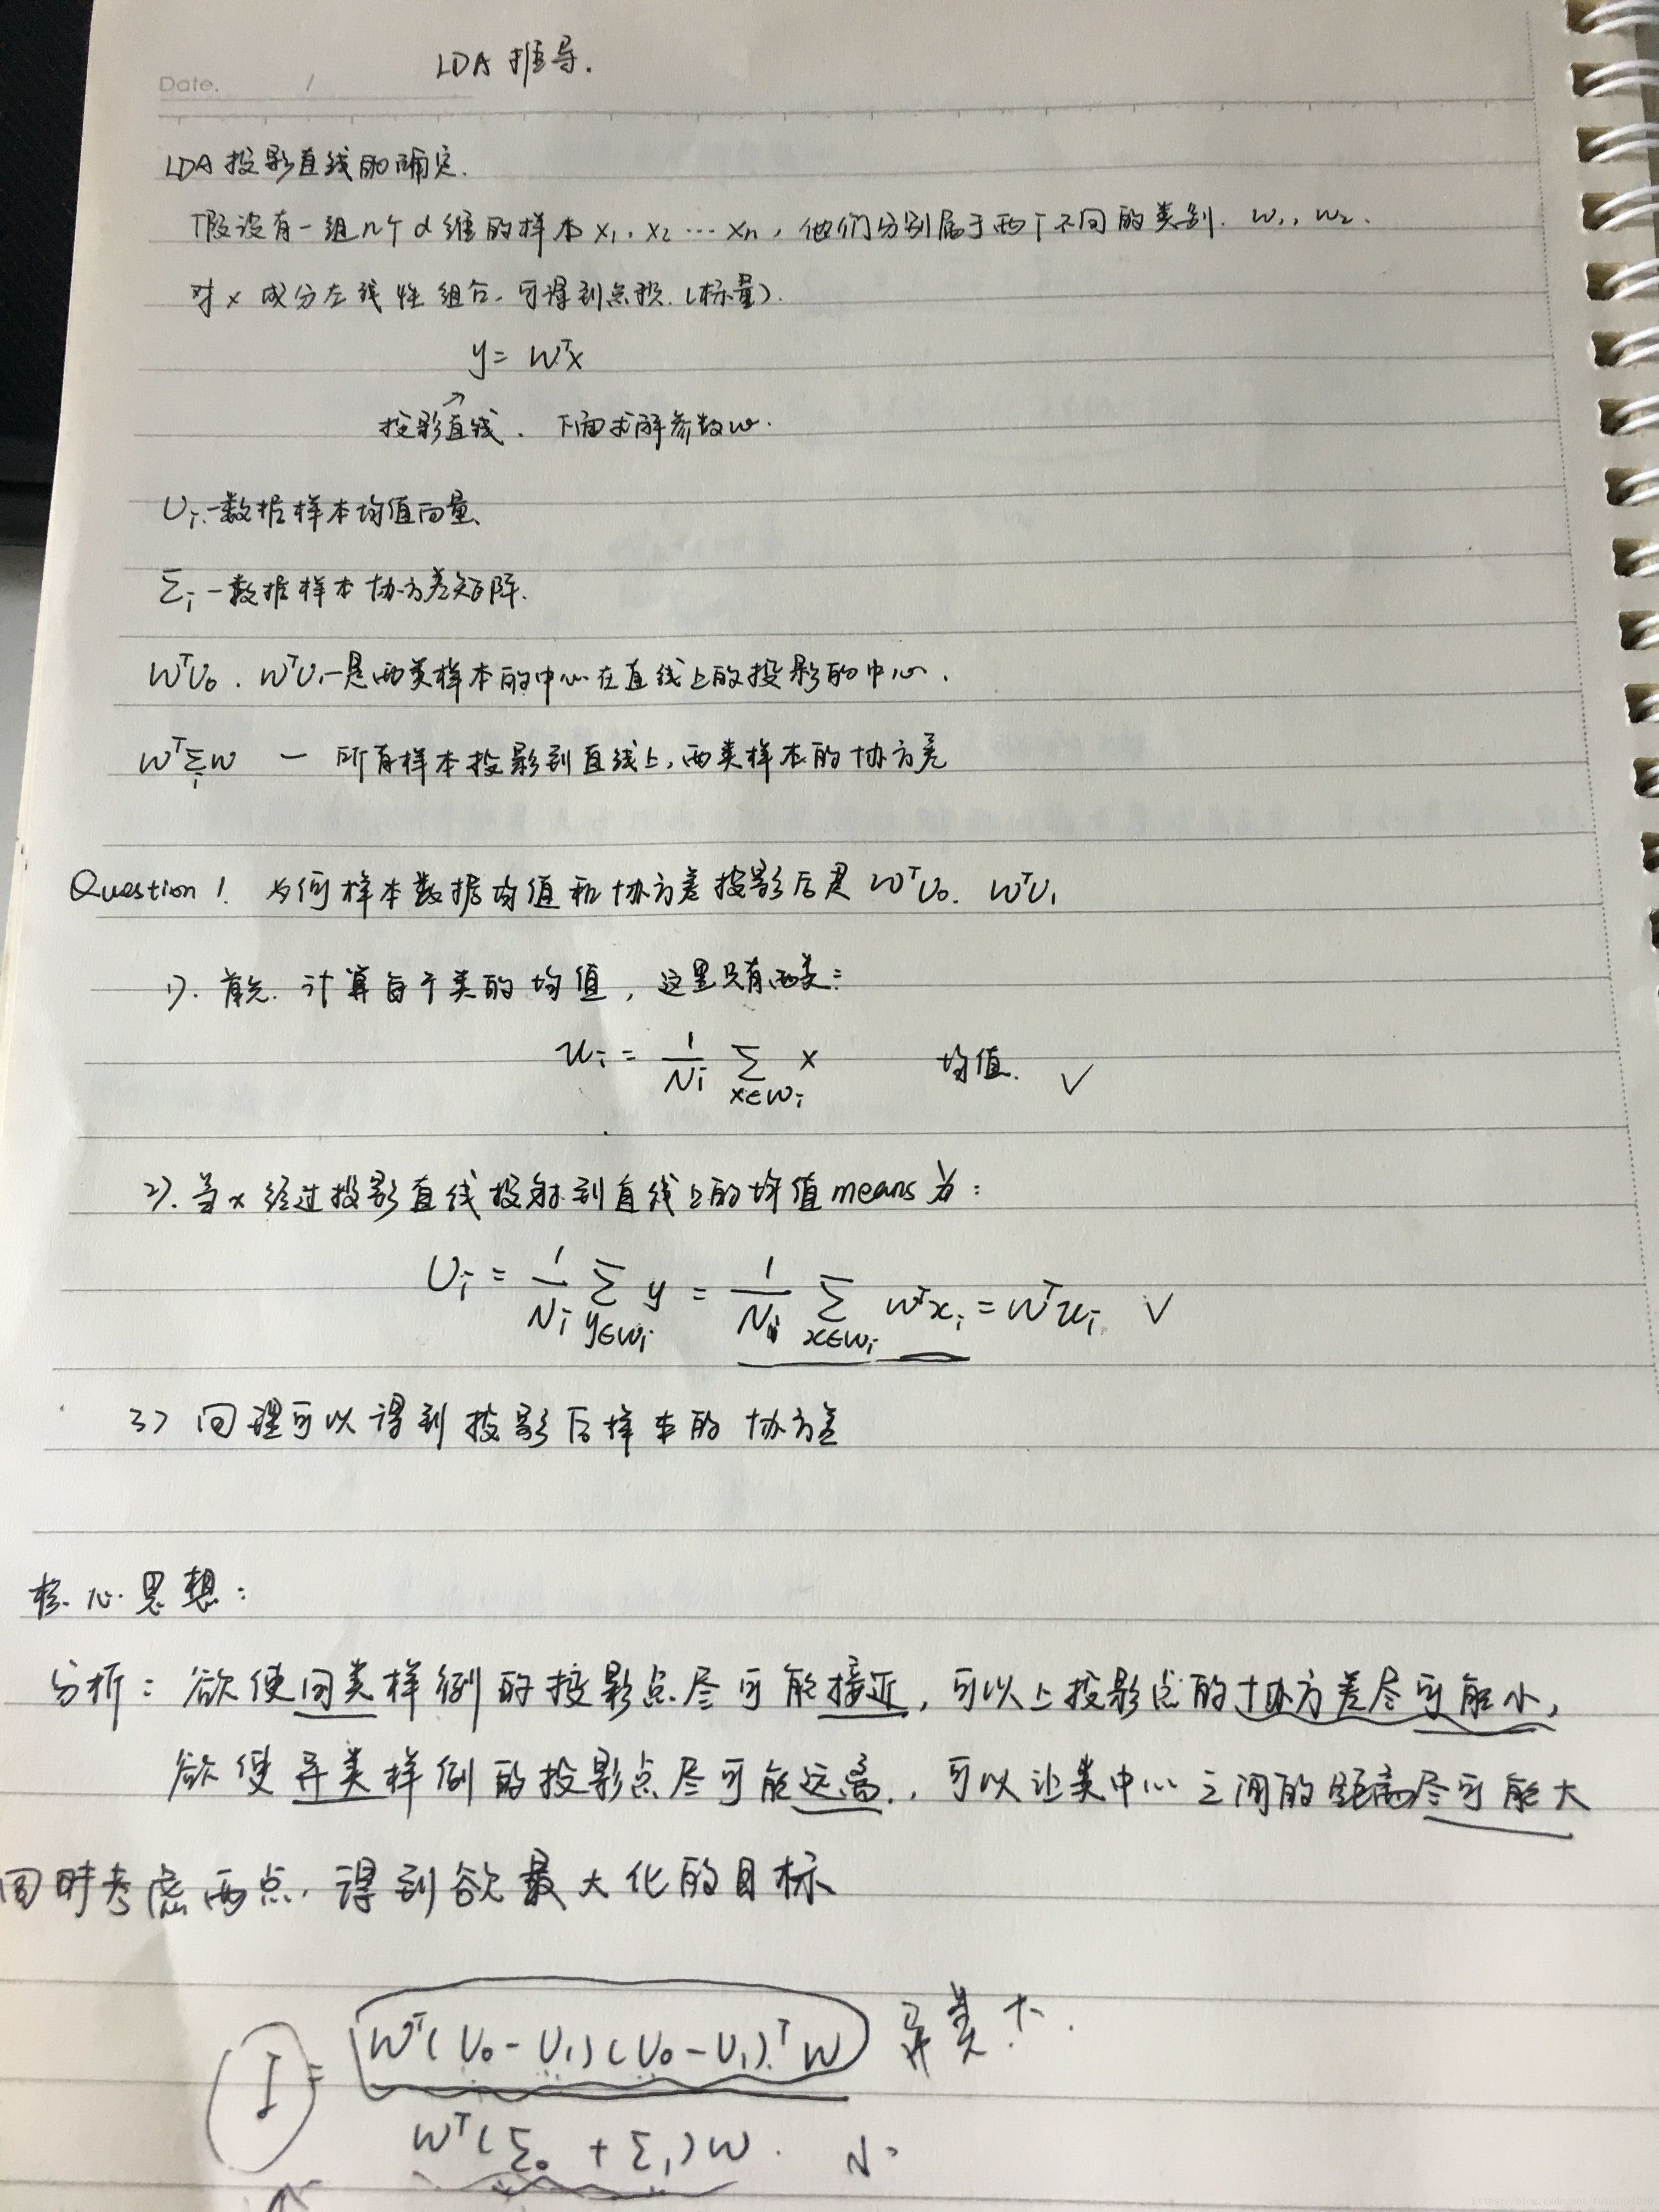 Date. /
LDA 推导.
LDA 投影直线的确定.
假设有一组n个d维的样本 x₁, x₂ … xn, 他们分别属于两个不同的类别. w₁, w₂.
对x成分在线性组合, 可得到点积.(标量).
y = wᵀx
↗
投影直线. 下面求解参数w.
Uᵢ - 数据样本均值向量.
Σᵢ - 数据样本协方差矩阵.
wᵀU₀. wᵀU₁ - 是两类样本的中心在直线上的投影的中心.
wᵀΣᵢw — 所有样本投影到直线上, 两类样本的协方差
Question 1. 为何样本数据均值和协方差投影后是 wᵀU₀. wᵀU₁
1). 首先. 计算每个类的均值, 这里只有两类:
uᵢ = 1/Nᵢ Σ_{x∈wᵢ} x 均值. ✓
2). 当x经过投影直线投射到直线上的均值means为:
Uᵢ = 1/Nᵢ Σ_{y∈wᵢ} y = 1/Nᵢ Σ_{x∈wᵢ} wᵀxᵢ = wᵀuᵢ ✓
3) 同理可以得到投影后样本的协方差
核心思想:
分析: 欲使同类样例的投影点尽可能接近, 可以上投影点的协方差尽可能小,
欲使异类样例的投影点尽可能远离., 可以让类中心之间的距离尽可能大
同时考虑两点, 得到欲最大化的目标
J = wᵀ(U₀ - U₁)(U₀ - U₁)ᵀw 异类大.
wᵀ(Σ₀ + Σ₁)w. 小